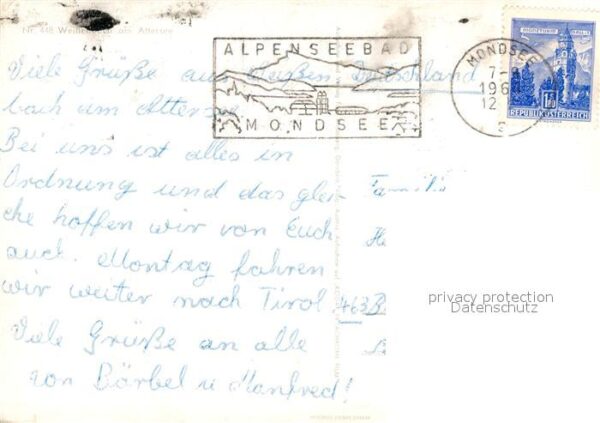 Nr. 448 am Attersee
ALPENSEEBAD
MONDSEE
MONDSEE
7-
196
12
MÜNZTURM HALL I. T.
1.50
REPUBLIK ÖSTERREICH
Viele Grüße aus Weißen Deutschland
bach am Attersee
Bei uns ist alles in
Ordnung und das glei
che hoffen wir von Euch
auch. Montag fahren
wir weiter nach Tirol.
Viele Grüße an alle
von Bärbel u Manfred!
Famili
463 B
privacy protection
Datenschutz